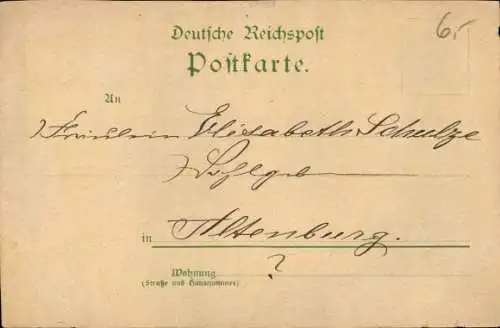 6,-
Deutsche Reichspost
Postkarte.
An
Fräulein Elisabeth Schulze
Wohlgeb
in Altenburg.
Wohnung ?
(Straße und Hausnummer)